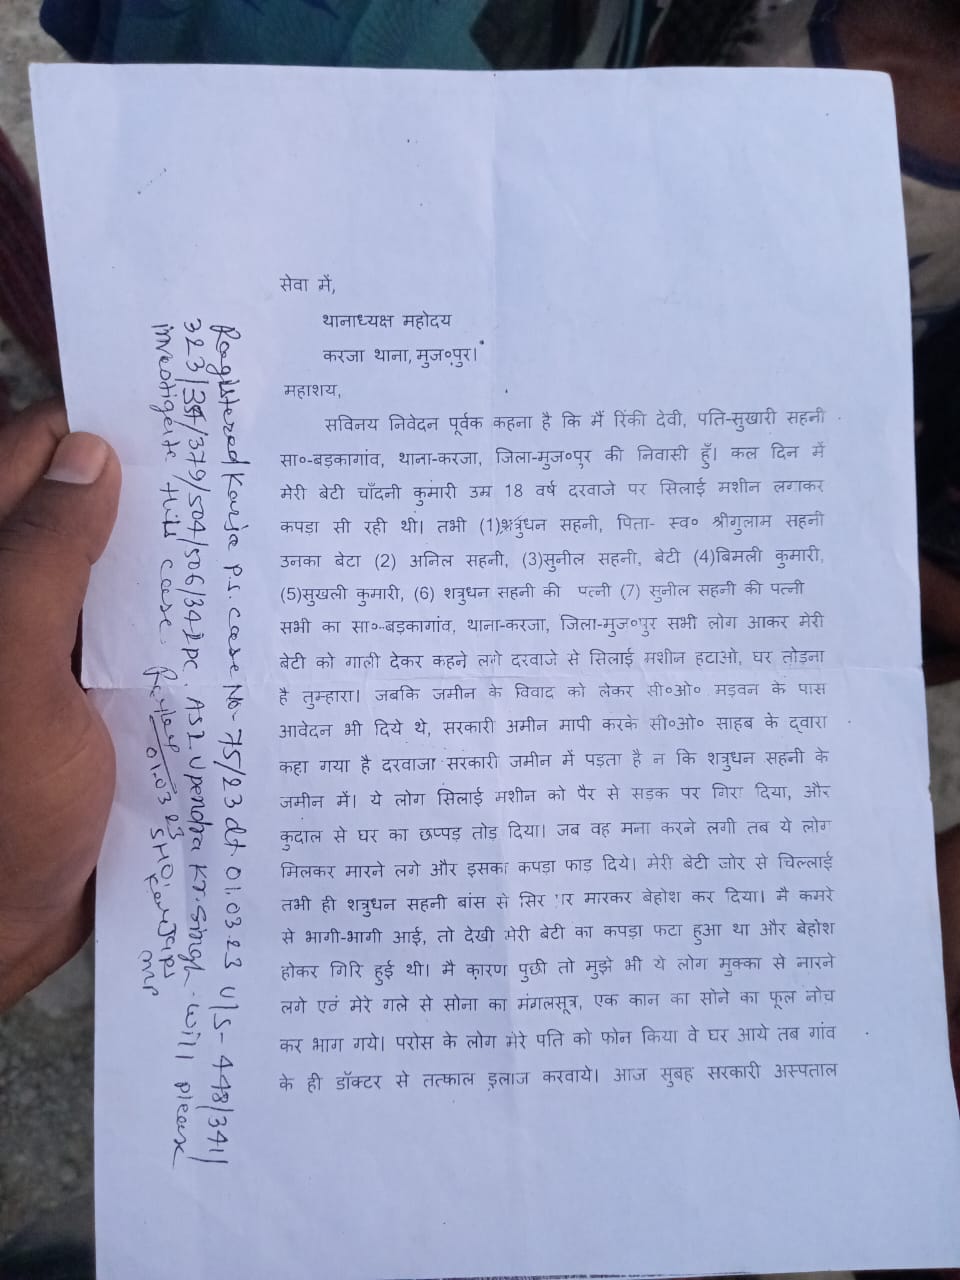 सेवा में,
थानाध्यक्ष महोदय
करजा थाना, मुज०पुर।
महाशय,
सविनय निवेदन पूर्वक कहना है कि मैं रिंकी देवी, पति-सुखारी सहनी
सा०-बड़कागांव, थाना-करजा, जिला-मुज०पुर की निवासी हूँ। कल दिन में
मेरी बेटी चाँदनी कुमारी उम्र 18 वर्ष दरवाजे पर सिलाई मशीन लगाकर
कपड़ा सी रही थी। तभी (1)शत्रुधन सहनी, पिता- स्व० श्रीगुलाम सहनी
उनका बेटा (2) अनिल सहनी, (3)सुनील सहनी, बेटी (4)बिमली कुमारी,
(5)सुखली कुमारी, (6) शत्रुधन सहनी की पत्नी (7) सुनील सहनी की पत्नी
सभी का सा०-बड़कागांव, थाना-करजा, जिला-मुज०पुर सभी लोग आकर मेरी
बेटी को गाली देकर कहने लगे दरवाजे से सिलाई मशीन हटाओ, घर तोड़ना
है तुम्हारा। जबकि जमीन के विवाद को लेकर सी०ओ० मड़वन के पास
आवेदन भी दिये थे, सरकारी अमीन मापी करके सी०ओ० साहब के द्वारा
कहा गया है दरवाजा सरकारी जमीन में पड़ता है न कि शत्रुधन सहनी के
जमीन में। ये लोग सिलाई मशीन को पैर से सड़क पर गिरा दिया, और
कुदाल से घर का छप्पड़ तोड़ दिया। जब वह मना करने लगी तब ये लोग
मिलकर मारने लगे और इसका कपड़ा फाड़ दिये। मेरी बेटी जोर से चिल्लाई
तभी ही शत्रुधन सहनी बांस से सिर पर मारकर बेहोश कर दिया। मै कमरे
से भागी-भागी आई, तो देखी मेरी बेटी का कपड़ा फटा हुआ था और बेहोश
होकर गिरि हुई थी। मै कारण पुछी तो मुझे भी ये लोग मुक्का से मारने
लगे एवं मेरे गले से सोना का मंगलसूत्र, एक कान का सोने का फूल नोच
कर भाग गये। परोस के लोग मेरे पति को फोन किया वे घर आये तब गांव
के ही डॉक्टर से तत्काल इलाज करवाये। आज सुबह सरकारी अस्पताल
Registered Karja P.S. case No- 75/23 dt. 01.03.23 U/S- 448/341/
323/354/379/504/506/34 IPC. ASI. Upendra Kr. Singh. will please
investigate this case.
01.03.23
SHO,
Karja PS